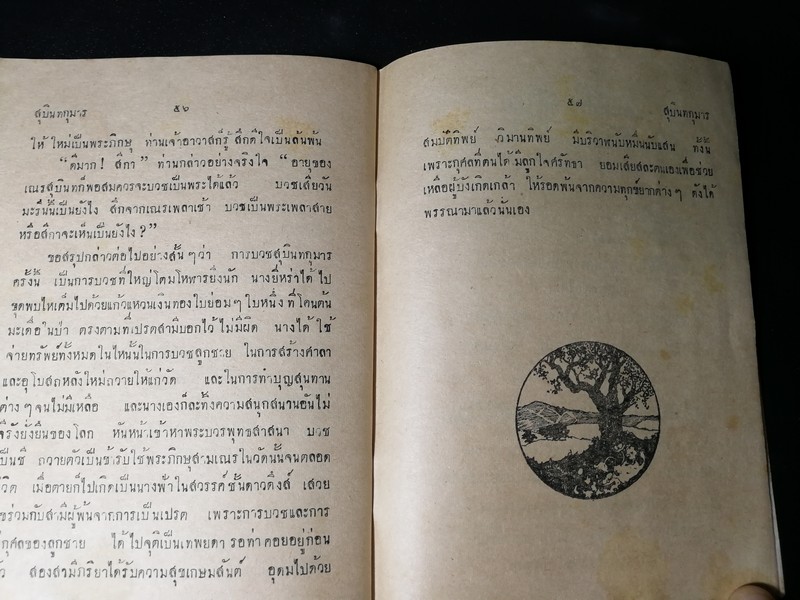 สุบินทกุมาร ๕๖
ให้ ใหม่เป็นพระภิกษุ ท่านเจ้าอาวาสก็รู้ สึกดีใจเป็นล้นพ้น
"ดีมาก! สีกา" ท่านกล่าวอย่างจริงใจ "อายุของ
เณรสุบินก็พอสมควรจะบวชเป็นพระได้แล้ว บวชเสียวัน
มะรืนนี้เป็นยังไง สึกจากเณรเพลาเช้า บวชเป็นพระเพลาสาย
หรือสีกาจะเห็นเป็นยังไง?"
ขอสรุปกล่าวต่อไปอย่างสั้นๆว่า การบวชสุบินทกุมาร
ครั้งนี้ เป็นการบวชที่ใหญ่โตมโหฬารยิ่งนัก นางยี่หร่าได้ ไป
ขุดพบไหเต็มไปด้วยแก้วแหวนเงินทองใบย่อมๆใบหนึ่ง ที่โคนต้น
มะเดื่อในป่า ตรงตามที่เปรตสามีบอกไว้ ไม่มีผิด นางได้ ใช้
จ่ายทรัพย์ทั้งหมดในไหนั้นในการบวชลูกชาย ในการสร้างศาลา
และอุโบสถหลังใหม่ถวายให้แก่วัด และในการทำบุญสุนทาน
ต่างๆจนไม่มีเหลือ และนางเองก็ละทิ้งความสนุกสนานอันไม่
จีรังยั่งยืนของโลก หันหน้าเข้าหาพระบวรพุทธสาสนา บวช
เป็นชี ถวายตัวเป็นข้ารับใช้พระภิกษุสามเณรในวัดนั้นจนตลอด
ชีวิต เมื่อตายก็ไปเกิดเป็นนางฟ้าในสวรรค์ชั้นดาวดึงส์ เสวย
ร่วมกับสามีผู้พ้นจากการเป็นเปรต เพราะการบวชและการ
กุศลของลูกชาย ได้ไปจุติเป็นเทพยดา รอท่าคอยอยู่ก่อน
สองสามีภริยาได้รับความสุขเกษมสันต์ อุดมไปด้วย
๕๗ สุบินทกุมาร
สมบัติทิพย์ วิมานทิพย์ มีบริวารนับหมื่นนับแสน ทั้งนี้
เพราะกุศลที่ตนได้มีลูกใจศรัทธา ยอมเสียสละตนเองเพื่อช่วย
เหลือผู้บังเกิดเกล้า ให้รอดพ้นจากความทุกข์ยากต่างๆ ดังได้
พรรณามาแล้วนั่นเอง